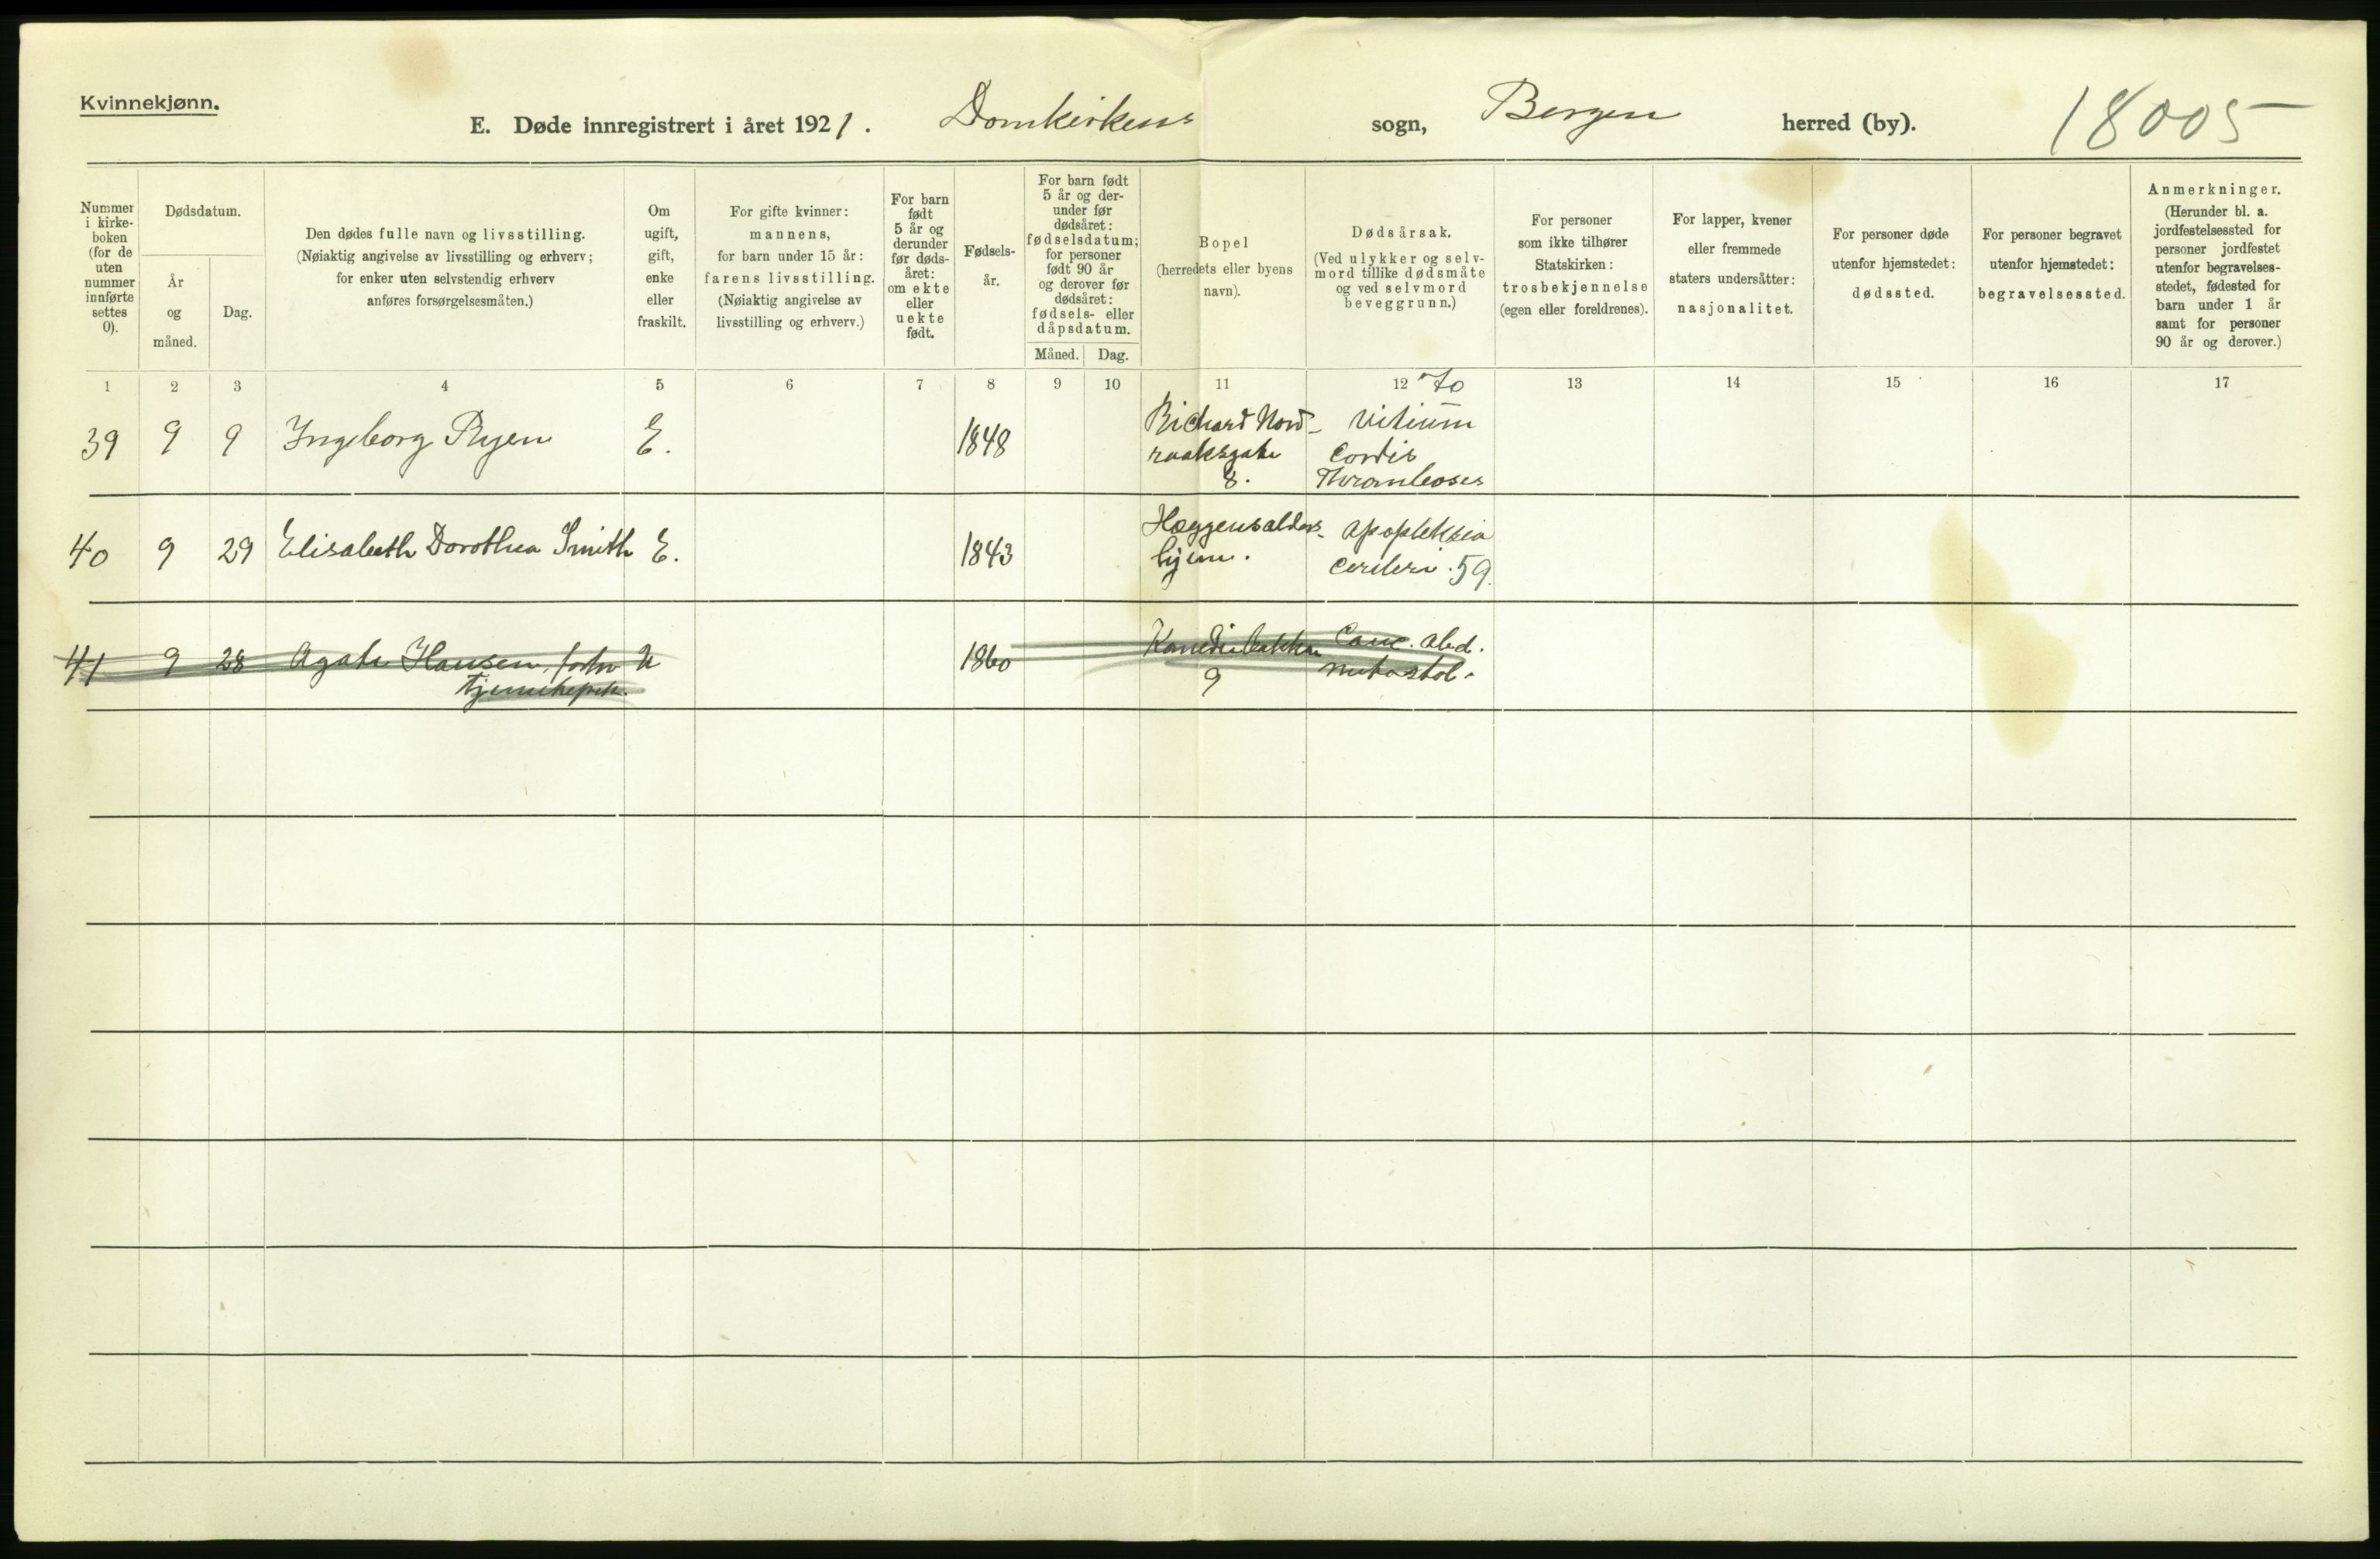 Kvinnekjønn.
E. Døde innregistrert i året 1921. Domkirkens sogn, Bergen herred (by). 18005
Nummer i kirke-boken (for de uten nummer innførte settes 0).
Dødsdatum.
År og måned.
Dag.
Den dødes fulle navn og livsstilling.
(Nøiaktig angivelse av livsstilling og erhverv;
for enker uten selvstendig erhverv
anføres forsørgelsesmåten.)
Om
ugift,
gift,
enke
eller
fraskilt.
For gifte kvinner:
mannens,
for barn under 15 år:
farens livsstilling.
(Nøiaktig angivelse av
livsstilling og erhverv.)
For barn
født
5 år og
derunder
før døds-
året:
om ekte
eller
uekte
født.
Fødsels-
år.
For barn født
5 år og der-
under før
dødsåret:
fødselsdatum;
for personer
født 90 år
og derover før
dødsåret:
fødsels- eller
dåpsdatum.
Måned. Dag.
Bopel
(herredets eller byens
navn).
Dødsårsak.
(Ved ulykker og selv-
mord tillike dødsmåte
og ved selvmord
beveggrunn.)
For personer
som ikke tilhører
Statskirken:
trosbekjennelse
(egen eller foreldrenes).
For lapper, kvener
eller fremmede
staters undersåtter:
nasjonalitet.
For personer døde
utenfor hjemstedet:
dødssted.
For personer begravet
utenfor hjemstedet:
begravelsessted.
Anmerkninger.
(Herunder bl. a.
jordfestelsessted for
personer jordfestet
utenfor begravelses-
stedet, fødested for
barn under 1 år
samt for personer
90 år og derover.)
1 2 3 4 5 6 7 8 9 10 11 12 70 13 14 15 16 17
39 9 9 Ingeborg Ryen E. 1848
Richard Nord-
raaksgate
8.
Vitium
Cordis
Thromboses
40 9 29 Elisabeth Dorothea Smith E. 1843
Hæggensalders-
hjem.
Apopleksia
cerebri. 59.
41 9 28 Agate Hansen, forhv U 1860
9
Canc. abd.